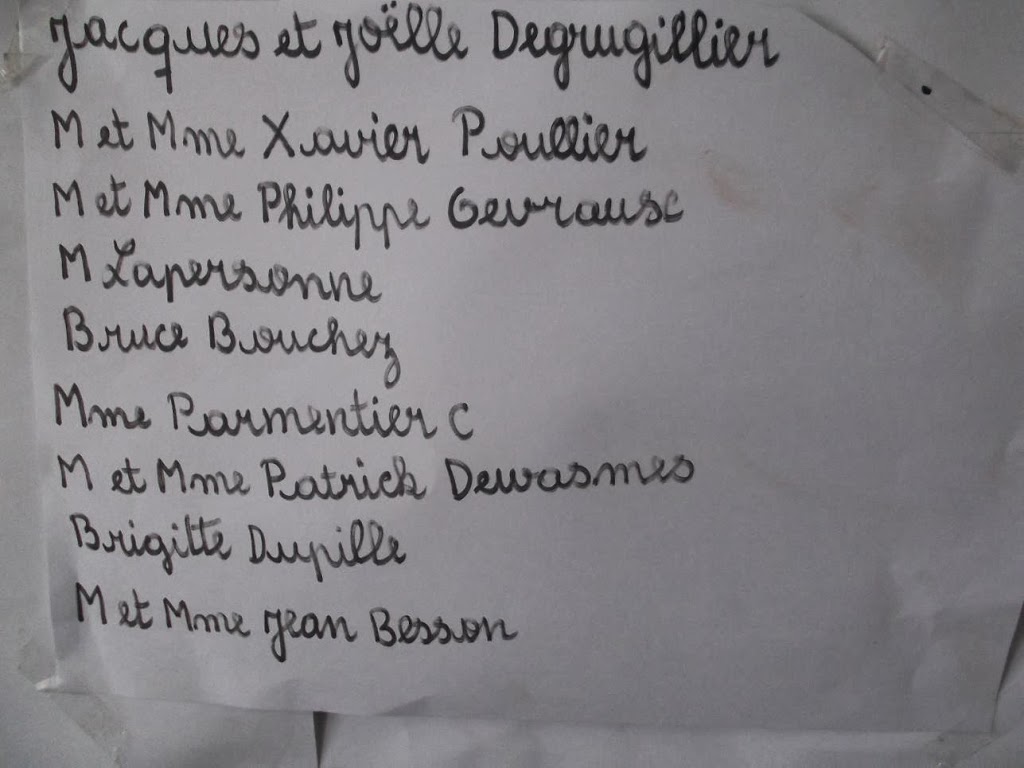 Jacques et Joëlle Degrugillier
M et Mme Xavier Poullier
M et Mme Philippe Gevrause
M Lapersonne
Bruce Bouchez
Mme Parmentier C
M et Mme Patrick Dewasmes
Brigitte Dupille
M et Mme Jean Besson